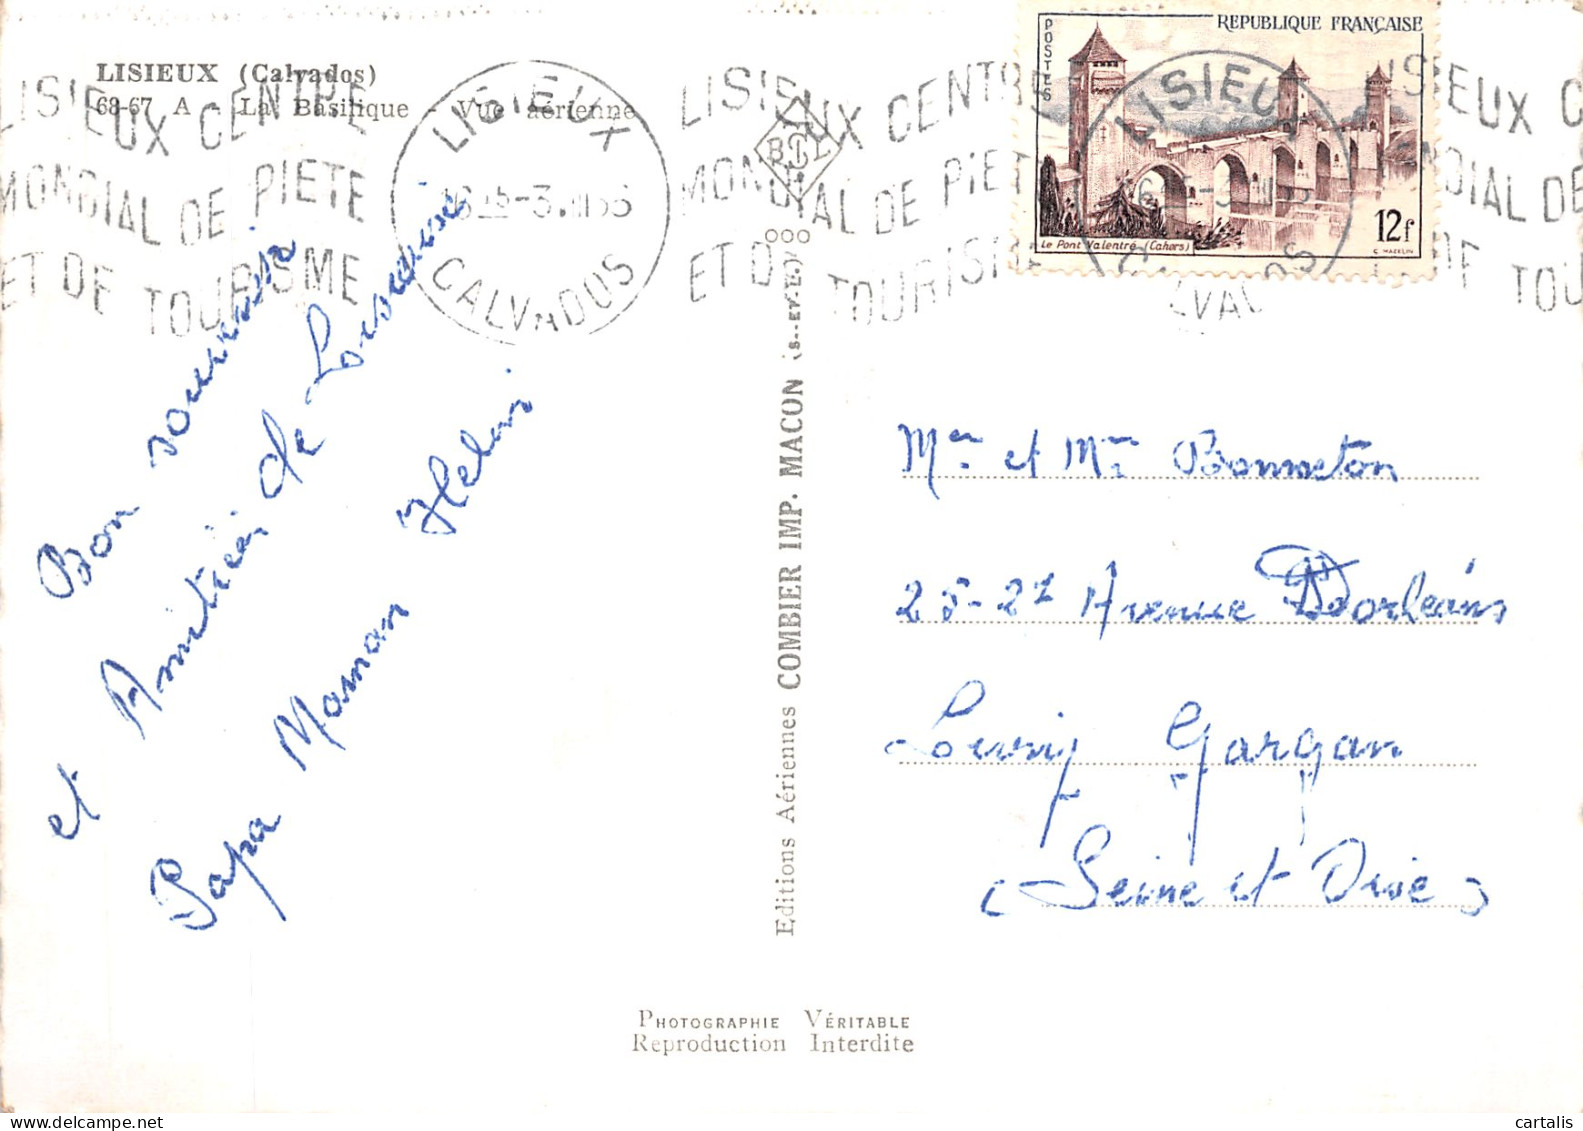 LISIEUX (Calvados)
68-67 A La Basilique - Vue aérienne
LISIEUX CENTRE
MONDIAL DE PIETE
ET DE TOURISME
LISIEUX
CALVADOS
LISIEUX CENTRE
MONDIAL DE PIET
ET D TOURISME
BSIL
POSTES
REPUBLIQUE FRANÇAISE
Le Pont Valentré (Cahors)
12f
C. MAZELIN
LISIEUX
CALVADOS
Bon souvenir
et Amitiés de
Papa Maman
Editions Aériennes COMBIER IMP. MACON (S.-ET-L.)
Mr et Mme Bonneton
25-27 Avenue Dorléans
Livry Gargan
(Seine et Oise)
PHOTOGRAPHIE VÉRITABLE
Reproduction Interdite
cartalis